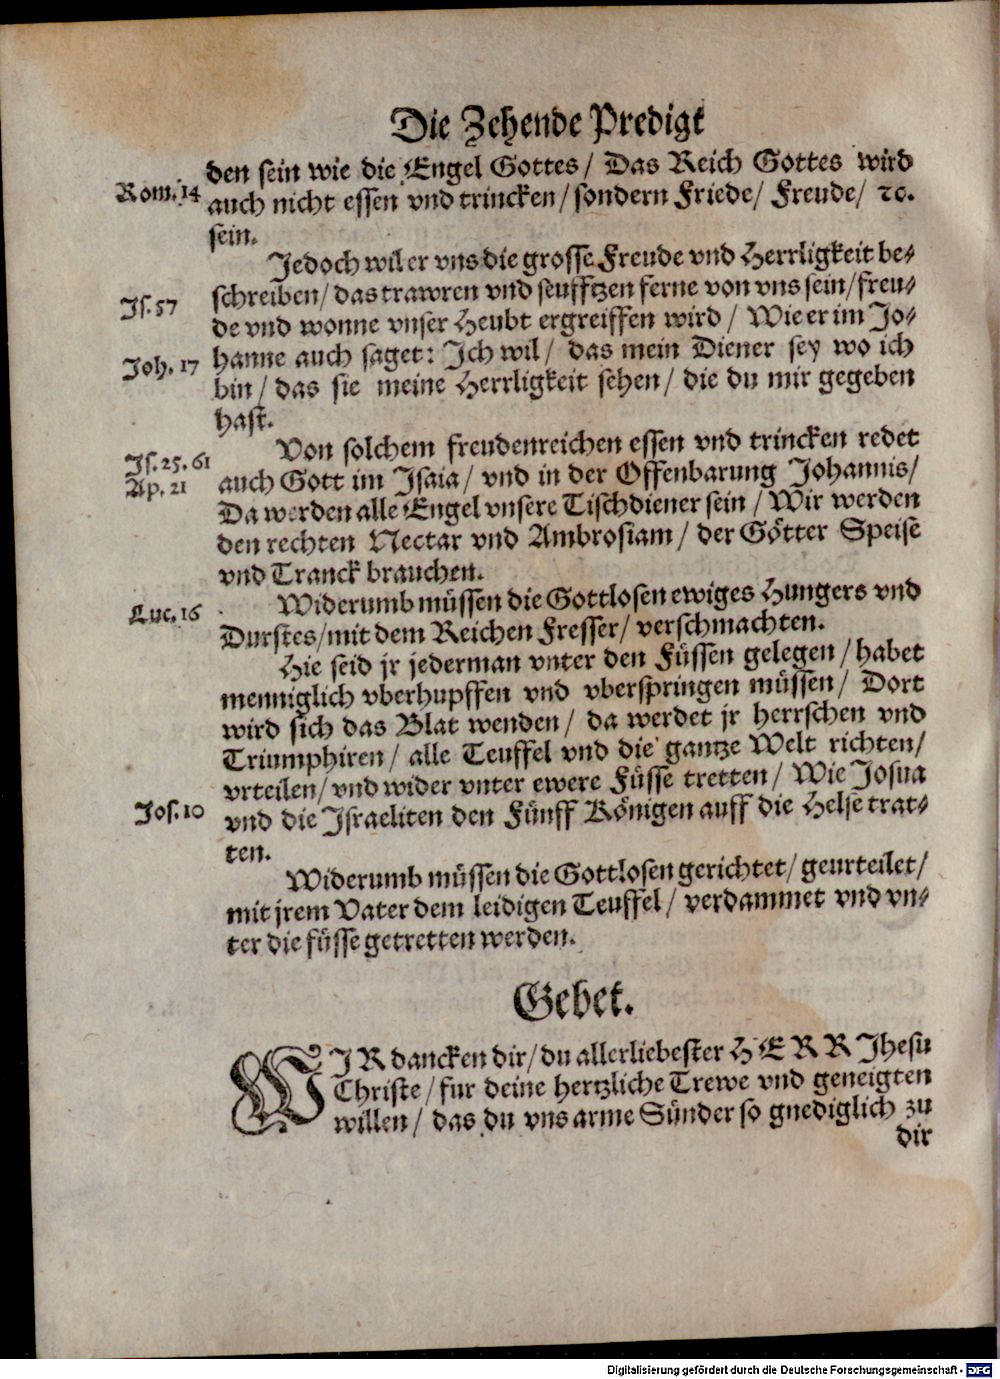 Die Zehende Predigt
den sein wie die Engel Gottes / Das Reich Gottes wird
Rom. 14 auch nicht essen vnd trincken / sondern Friede / Freude / ꝛc.
sein.
Jedoch wil er vns die grosse Freude vnd Herrligkeit be-
Js. 57 schreiben / das trawren vnd seufftzen ferne von vns sein / freu-
de vnd wonne vnser Heubt ergreiffen wird / Wie er im Jo-
Joh. 17 hanne auch saget: Ich wil / das mein Diener sey wo ich
bin / das sie meine Herrligkeit sehen / die du mir gegeben
hast.
Von solchem freudenreichen essen vnd trincken redet
Js. 25. 61 auch Gott im Isaia / vnd in der Offenbarung Johannis /
Ap. 21 Da werden alle Engel vnsere Tischdiener sein / Wir werden
den rechten Nectar vnd Ambrosiam / der Götter Speise
vnd Tranck brauchen.
Luc. 16 Widerumb müssen die Gottlosen ewiges Hungers vnd
Durstes / mit dem Reichen Fresser / verschmachten.
Hie seid jr jederman vnter den Füssen gelegen / habet
menniglich vberhupffen vnd vberspringen müssen / Dort
wird sich das Blat wenden / da werdet jr herrschen vnd
Triumphiren / alle Teuffel vnd die gantze Welt richten /
vrteilen / vnd wider vnter ewere Füsse tretten / Wie Josua
Jos. 10 vnd die Israeliten den Fünff Königen auff die Helse trat-
ten.
Widerumb müssen die Gottlosen gerichtet / geurteilet /
mit jrem Vater dem leidigen Teuffel / verdammet vnd vn-
ter die füsse getretten werden.
Gebet.
WIR dancken dir / du allerliebester HERR Jhesu
Christe / fur deine hertzliche Trewe vnd geneigten
willen / das du vns arme Sünder so gnediglich zu
dir
Digitalisierung gefördert durch die Deutsche Forschungsgemeinschaft - DFG